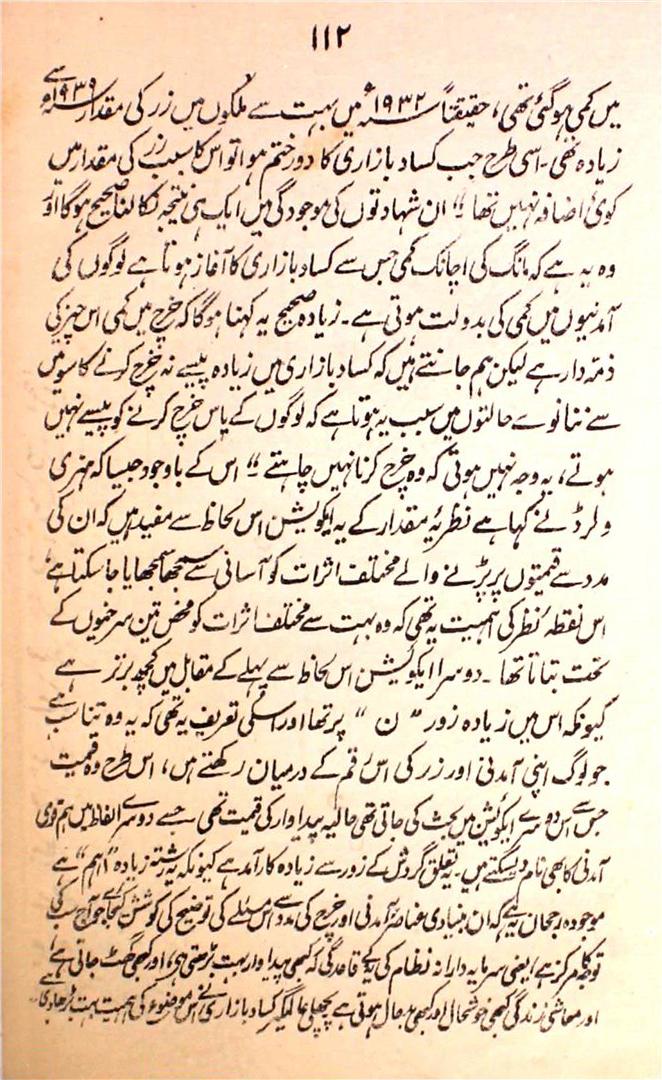 ۱۱۲
میں کمی ہو گئی تھی، حقیقتاً ۱۹۳۲ء میں بہت سے ملکوں میں زر کی مقدار ۱۹۳۹ء سے
زیادہ تھی۔ اسی طرح جب کساد بازاری کا دور ختم ہوا تو اس کا سبب زر کی مقدار میں
کوئی اضافہ نہیں تھا ‘‘ ان شہادتوں کی موجودگی میں ایک ہی نتیجہ نکالنا صحیح ہوگا اور
وہ یہ ہے کہ مانگ کی اچانک کمی جس سے کساد بازاری کا آغاز ہوتا ہے لوگوں کی
آمدنیوں میں کمی کی بدولت ہوتی ہے۔ زیادہ صحیح یہ کہنا ہوگا کہ خرچ میں کمی اس چیز کی
ذمہ دار ہے لیکن ہم جانتے ہیں کہ کساد بازاری میں زیادہ پیسے نہ خرچ کرنے کا سو میں
سے ننانوے حالتوں میں سبب یہ ہوتا ہے کہ لوگوں کے پاس خرچ کرنے کو پیسے نہیں
ہوتے، یہ وجہ نہیں ہوتی کہ وہ خرچ کرنا نہیں چاہتے ‘‘ اس کے باوجود جیسا کہ ہنری
ولرڈ نے کہا ہے نظریۂ مقدار کے یہ ایکویشن اس لحاظ سے مفید ہیں کہ ان کی
مدد سے قیمتوں پر پڑنے والے مختلف اثرات کو آسانی سے سمجھا سمجھایا جا سکتا ہے،
اس نقطۂ نظر کی اہمیت یہ تھی کہ وہ بہت سے مختلف اثرات کو محض تین سرخیوں کے
تحت بتاتا تھا۔ دوسرا ایکویشن اس لحاظ سے پہلے کے مقابل میں کچھ برتر ہے
کیونکہ اس میں زیادہ زور ’’ ن ‘‘ پر تھا اور اسکی تعریف یہ تھی کہ یہ وہ تناسب ہے
جو لوگ اپنی آمدنی اور زر کی اس رقم کے درمیان رکھتے ہیں، اس طرح وہ قیمت
جس سے اس دوسرے ایکویشن میں بحث کی جاتی تھی حالیہ پیداوار کی قیمت تھی جسے دوسرے الفاظ میں ہم قومی
آمدنی کا بھی نام دیسکتے ہیں۔ یہ تعلق گردش کے زور سے زیادہ کارآمد ہے کیونکہ یہ رشتہ زیادہ ’’اہم‘‘ ہے
موجودہ رجحان یہ ہے کہ ان بنیادی عناصر آمدنی اور خرچ کی مدد سے اس مسئلے کی توضیح کی کوشش کیجائے جو آج سب کی
توجہ کا مرکز ہے، یعنی سرمایہ دارانہ نظام کی یہ بے قاعدگی کہ کبھی پیداوار بہت بڑھتی ہی، اور کبھی گھٹ جاتی ہے
اور معاشی زندگی کبھی خوشحال اور کبھی بدحال ہوتی ہے پچھلی عالمگیر کساد بازاری نے اس موضوع کی اہمیت بہت بڑھا دی ہے